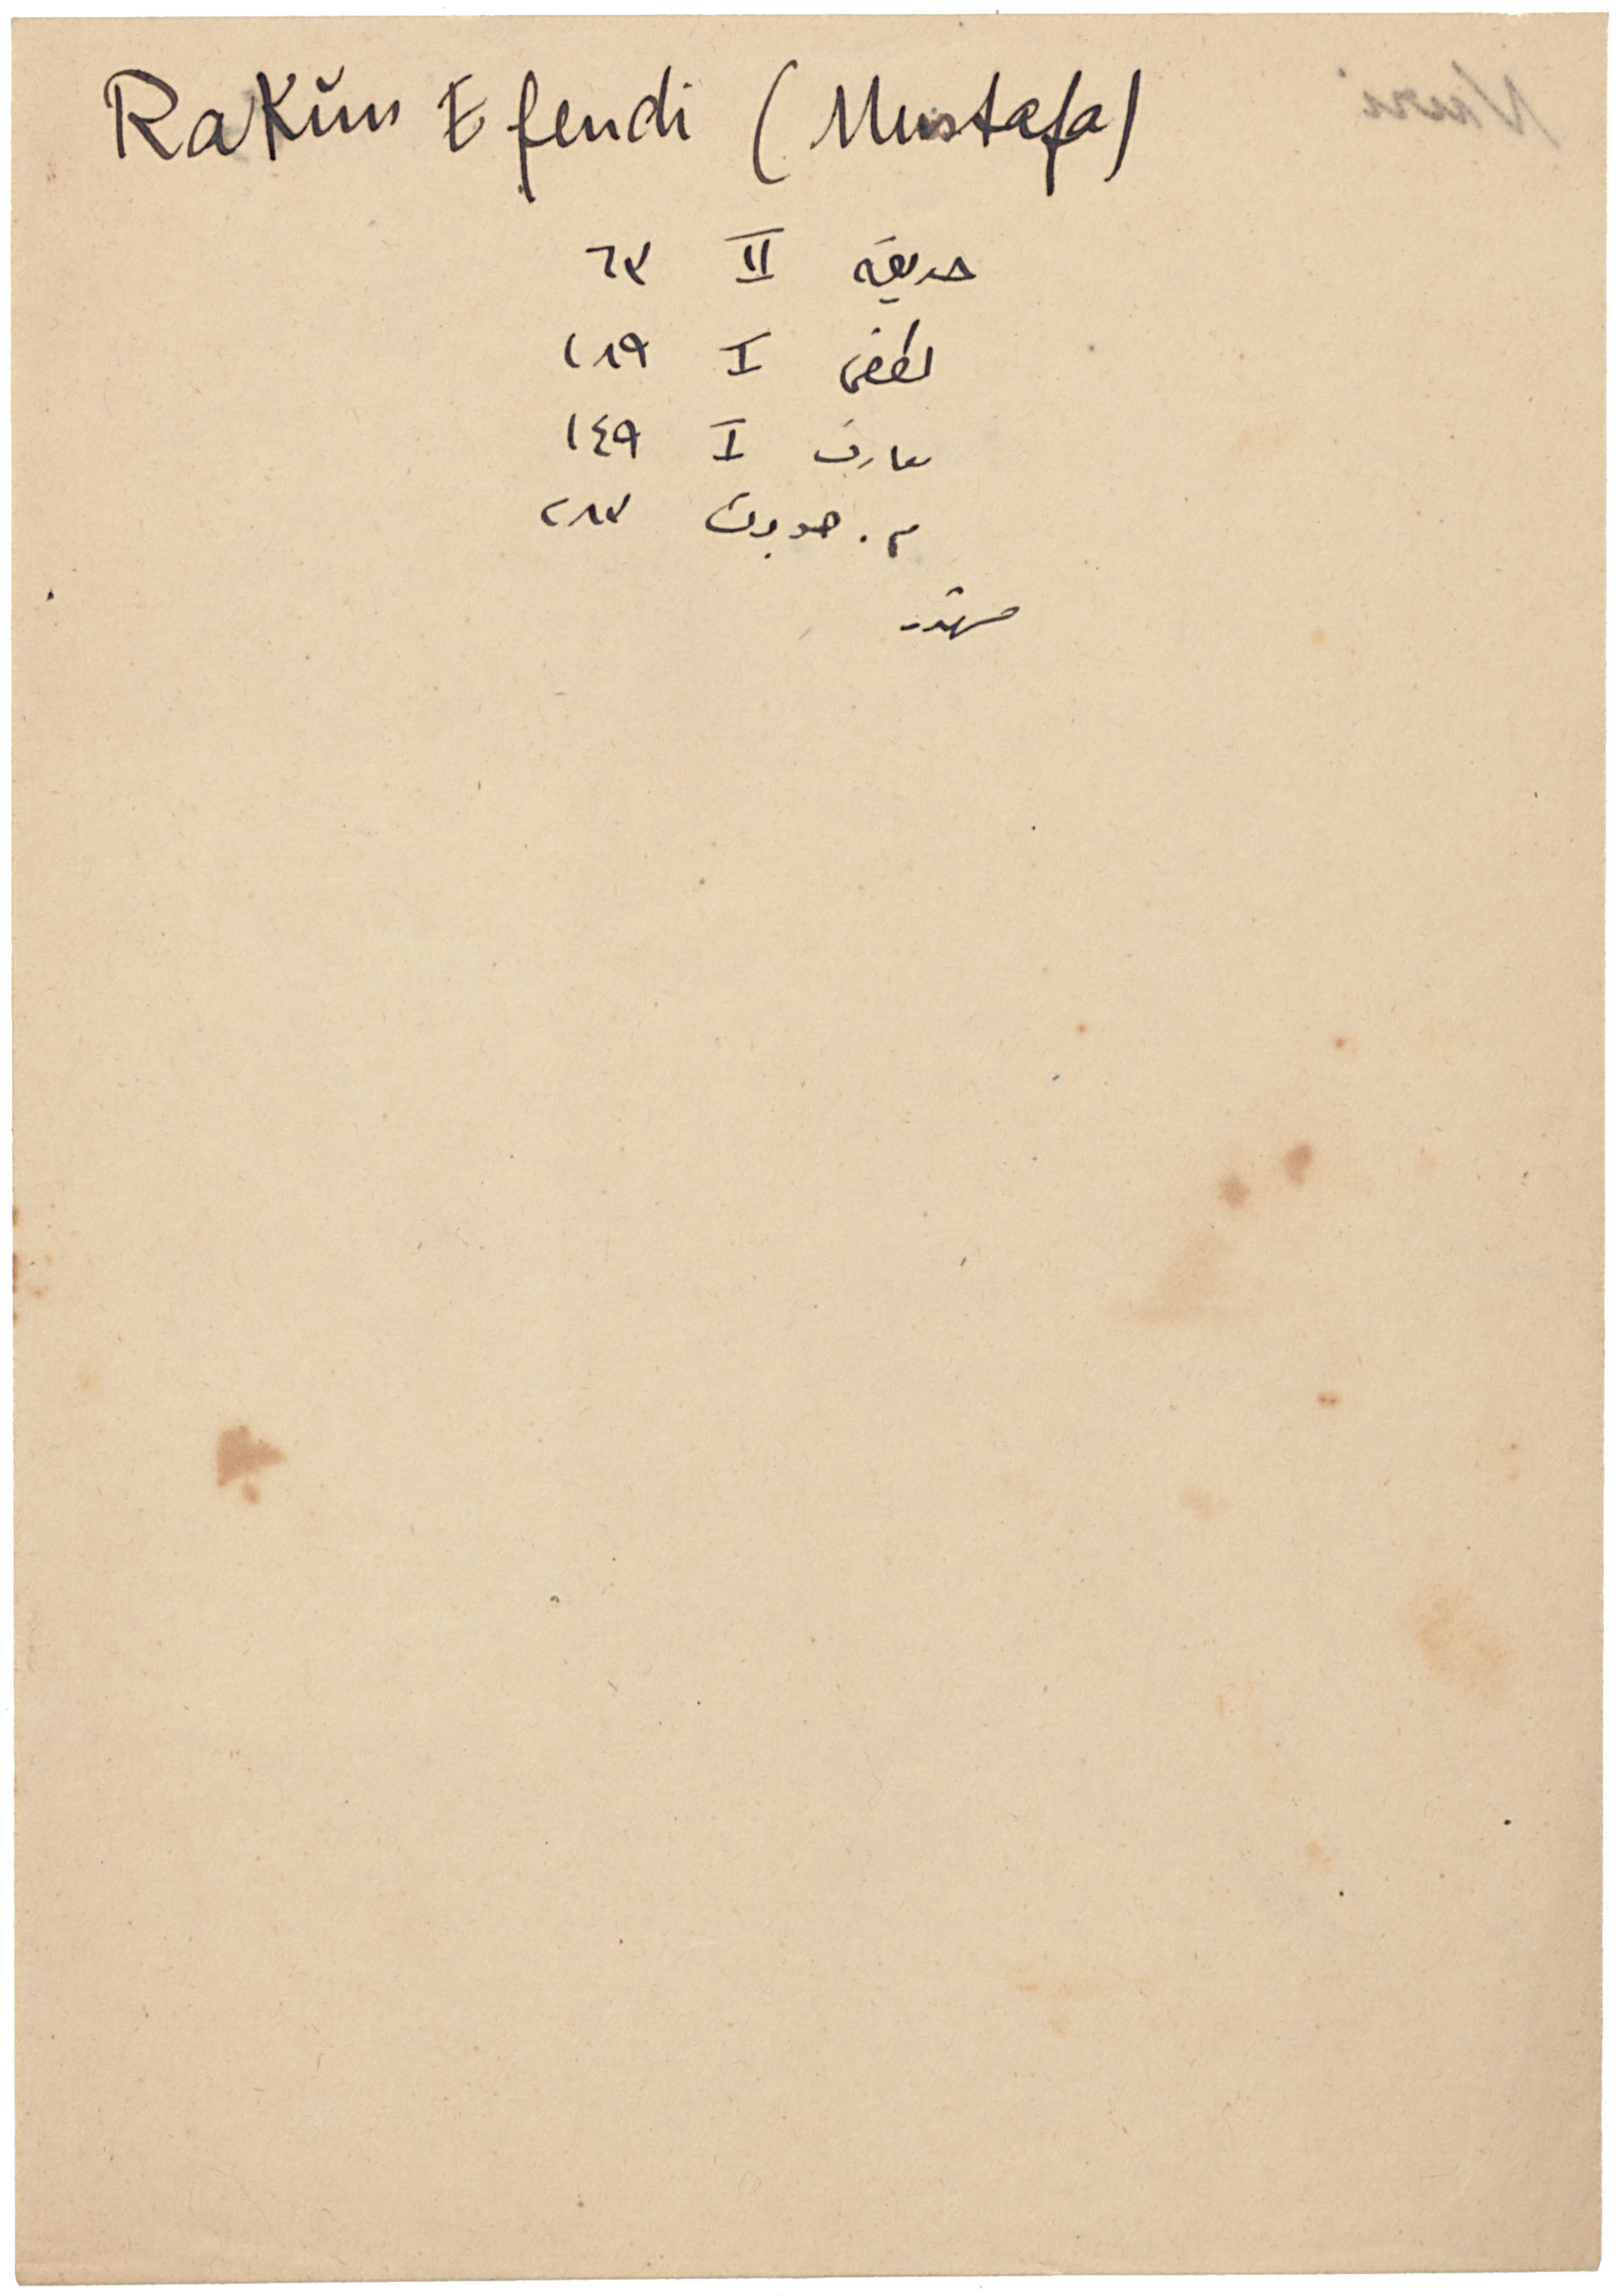 Rakım Efendi (Mustafa)
حديقه II ٦٣
لطفى I ٢٨٩
معارف I ١٤٩
م. جودت ٢٨٣